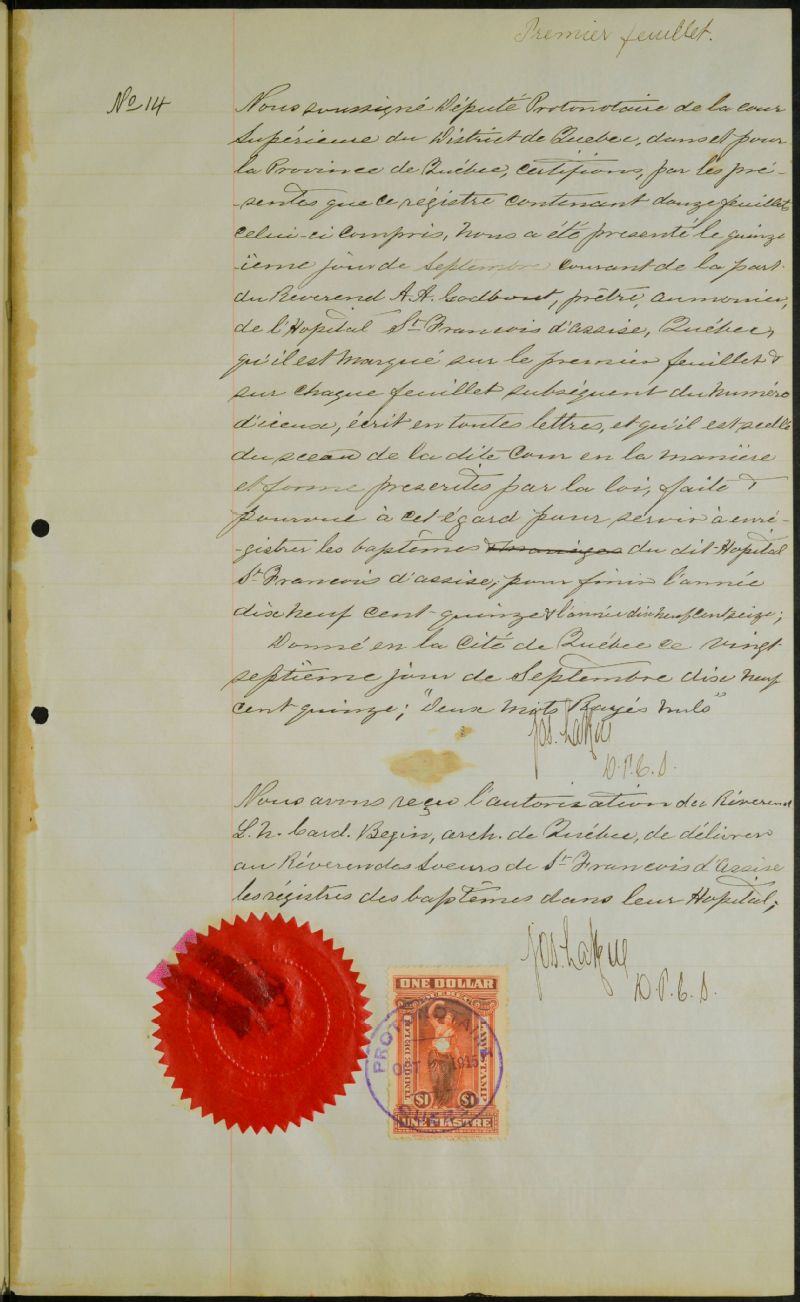 Premier feuillet.
No 14
Nous soussigné Député Protonotaire de la cour
Supérieure du District de Quebec, dans et pour
la Province de Québec, certifions, par les pré-
-sentes que ce régistre contenant douze feuillets
celui-ci compris, nous a été presenté le quinz
ième jour de Septembre courant de la part
du Reverend A. A. Godbout, prêtre, aumonier,
de l'Hopital St. Francois d'assise, Québec,
qu'il est marqué sur le premier feuillet &
sur chaque feuillet subséquent du numéro
d'iceux, écrit en toutes lettres, et qu'il est scellé
du sceau de la dite Cour en la manière
et forme prescrites par la loi, faite &
pourvue à cet égard pour servir à enré-
-gistrer les baptêmes & mariages du dit Hopital
St. Francois d'assise, pour finir l'année
dix neuf cent-quinze & l'année dix neuf cent seize;
Donné en la Cité de Québec ce vingt
septième jour de Septembre dix neuf
cent quinze; "Deux mots Rayés nuls"
D.P.C.S.
Nous avons reçu l'autorisation du Réverend
L. N. Card. Begin, arch. de Québec, de délivrer
au Réverendes Soeurs de St. Francois d'Assise
les régistres des baptêmes dans leur Hopital;
D.P.C.S.
ONE DOLLAR
TIMBRE DE LOI
LAW STAMP
$1 $1
UNE PIASTRE
PROTONOTAIRE
OCT 1915
QUEBEC